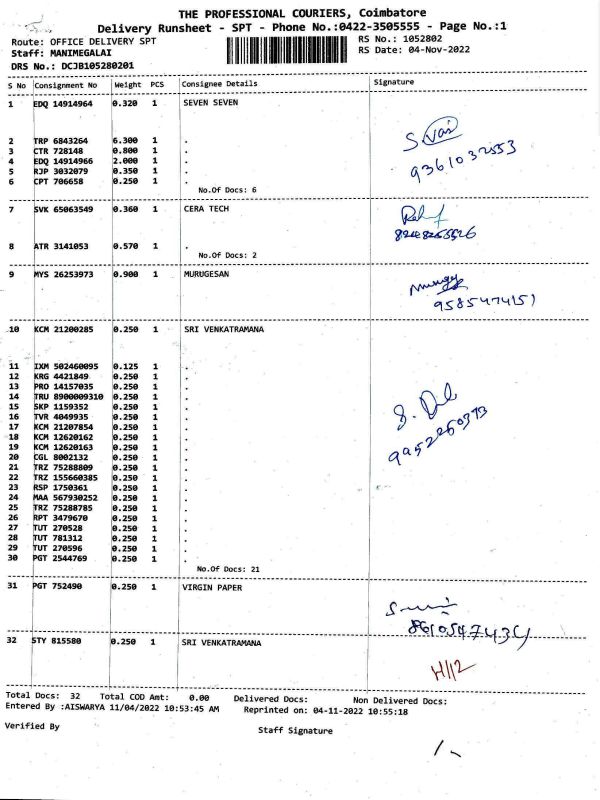 THE PROFESSIONAL COURIERS, Coimbatore
Delivery Runsheet - SPT - Phone No.:0422-3505555 - Page No.:1
Route: OFFICE DELIVERY SPT RS No.: 1052802
Staff: MANIMEGALAI RS Date: 04-Nov-2022
DRS No.: DCJB105280201
S No Consignment No Weight PCS Consignee Details Signature
1 EDQ 14914964 0.320 1 SEVEN SEVEN
2 TRP 6843264 6.300 1 .
3 CTR 728148 0.800 1 .
9361032553
4 EDQ 14914966 2.000 1 .
5 RJP 3032079 0.350 1 .
6 CPT 706658 0.250 1 .
No.Of Docs: 6
7 SVK 65063549 0.360 1 CERA TECH
8 ATR 3141053 0.570 1 .
No.Of Docs: 2
9 MYS 26253973 0.900 1 MURUGESAN
9585474151
10 KCM 21200285 0.250 1 SRI VENKATRAMANA
11 IXM 502460095 0.125 1 .
12 KRG 4421849 0.250 1 .
13 PRO 14157035 0.250 1 .
14 TRU 8900009310 0.250 1 .
15 SKP 1159352 0.250 1 .
16 TVR 4049935 0.250 1 .
17 KCM 21207854 0.250 1 .
18 KCM 12620162 0.250 1 .
19 KCM 12620163 0.250 1 .
20 CGL 8002132 0.250 1 .
21 TRZ 75288809 0.250 1 .
22 TRZ 155660385 0.250 1 .
23 RSP 1750361 0.250 1 .
24 MAA 567930252 0.250 1 .
25 TRZ 75288785 0.250 1 .
26 RPT 3479670 0.250 1 .
27 TUT 270528 0.250 1 .
28 TUT 781312 0.250 1 .
29 TUT 270596 0.250 1 .
30 PGT 2544769 0.250 1 .
No.Of Docs: 21
31 PGT 752490 0.250 1 VIRGIN PAPER
32 STY 815580 0.250 1 SRI VENKATRAMANA
H112
Total Docs: 32 Total COD Amt: 0.00 Delivered Docs: Non Delivered Docs:
Entered By :AISWARYA 11/04/2022 10:53:45 AM Reprinted on: 04-11-2022 10:55:18
Verified By Staff Signature